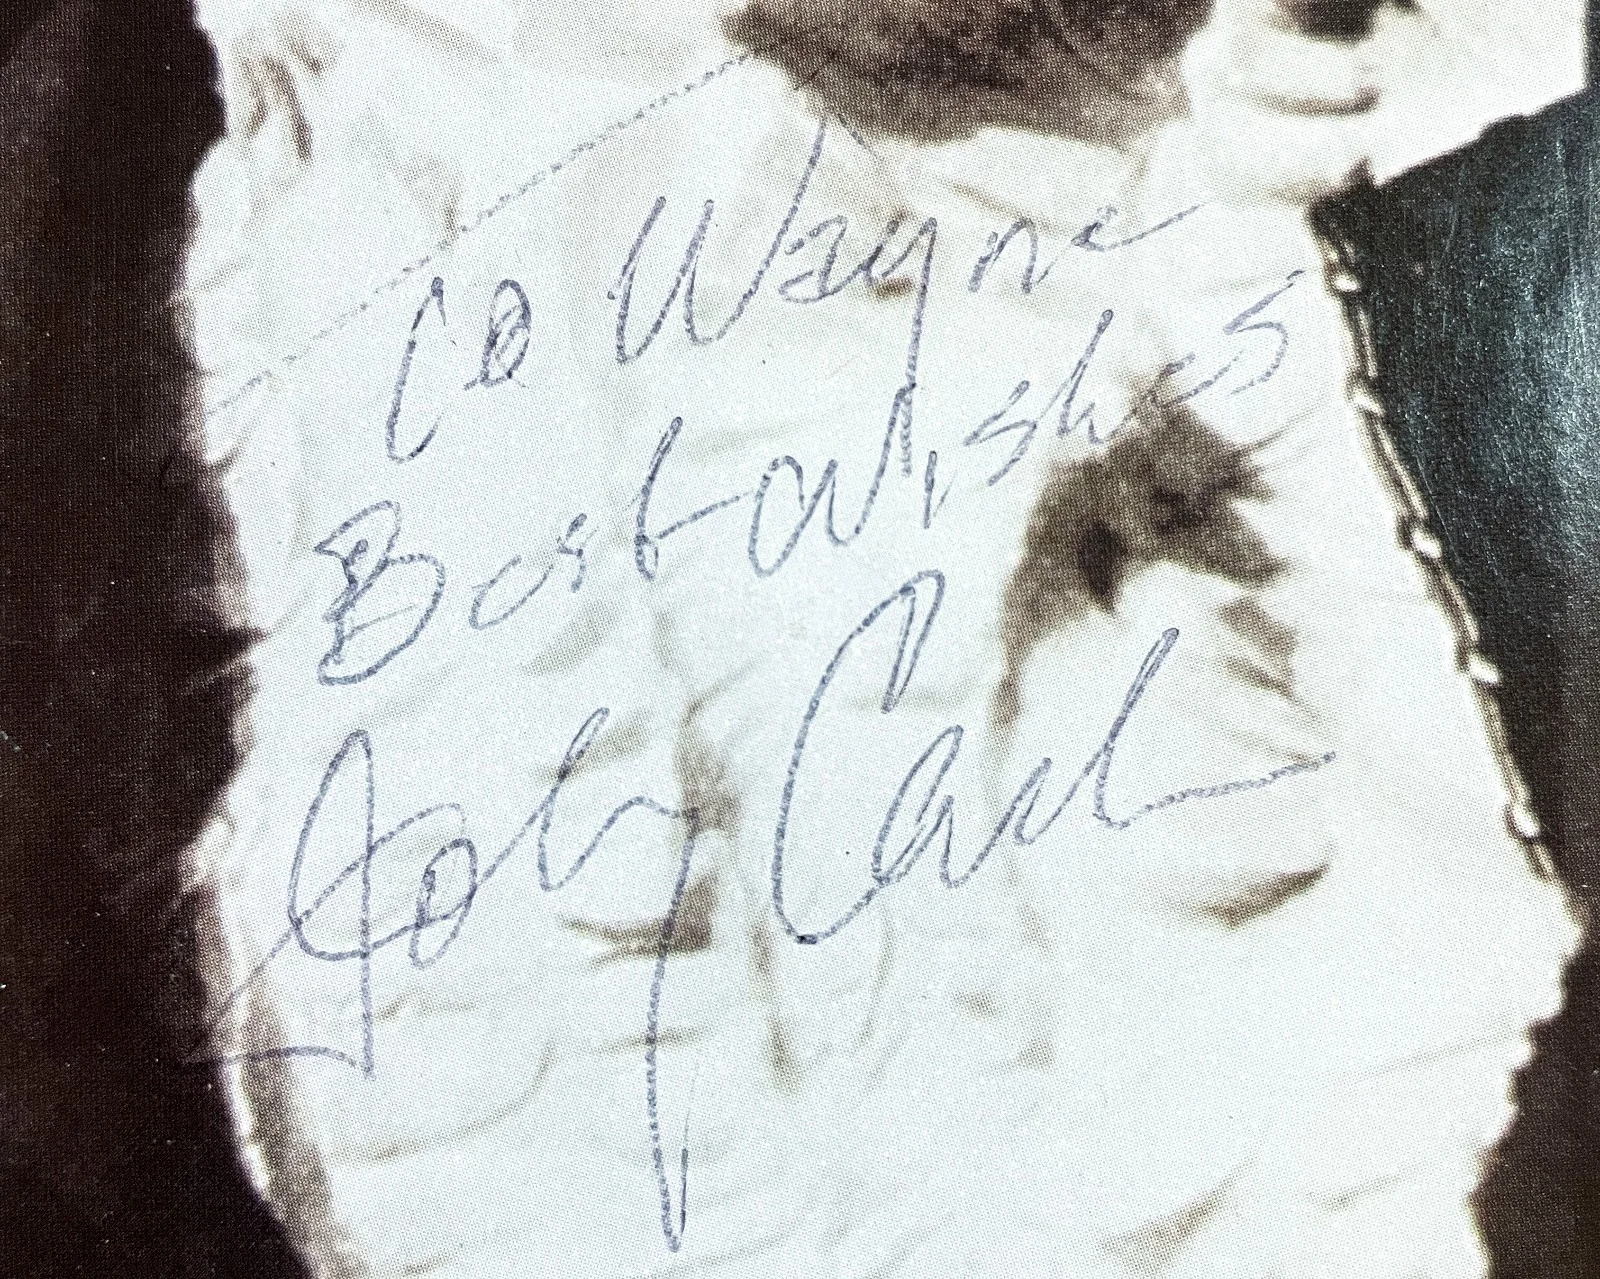 To Wayne
Best Wishes
Johnny Cash